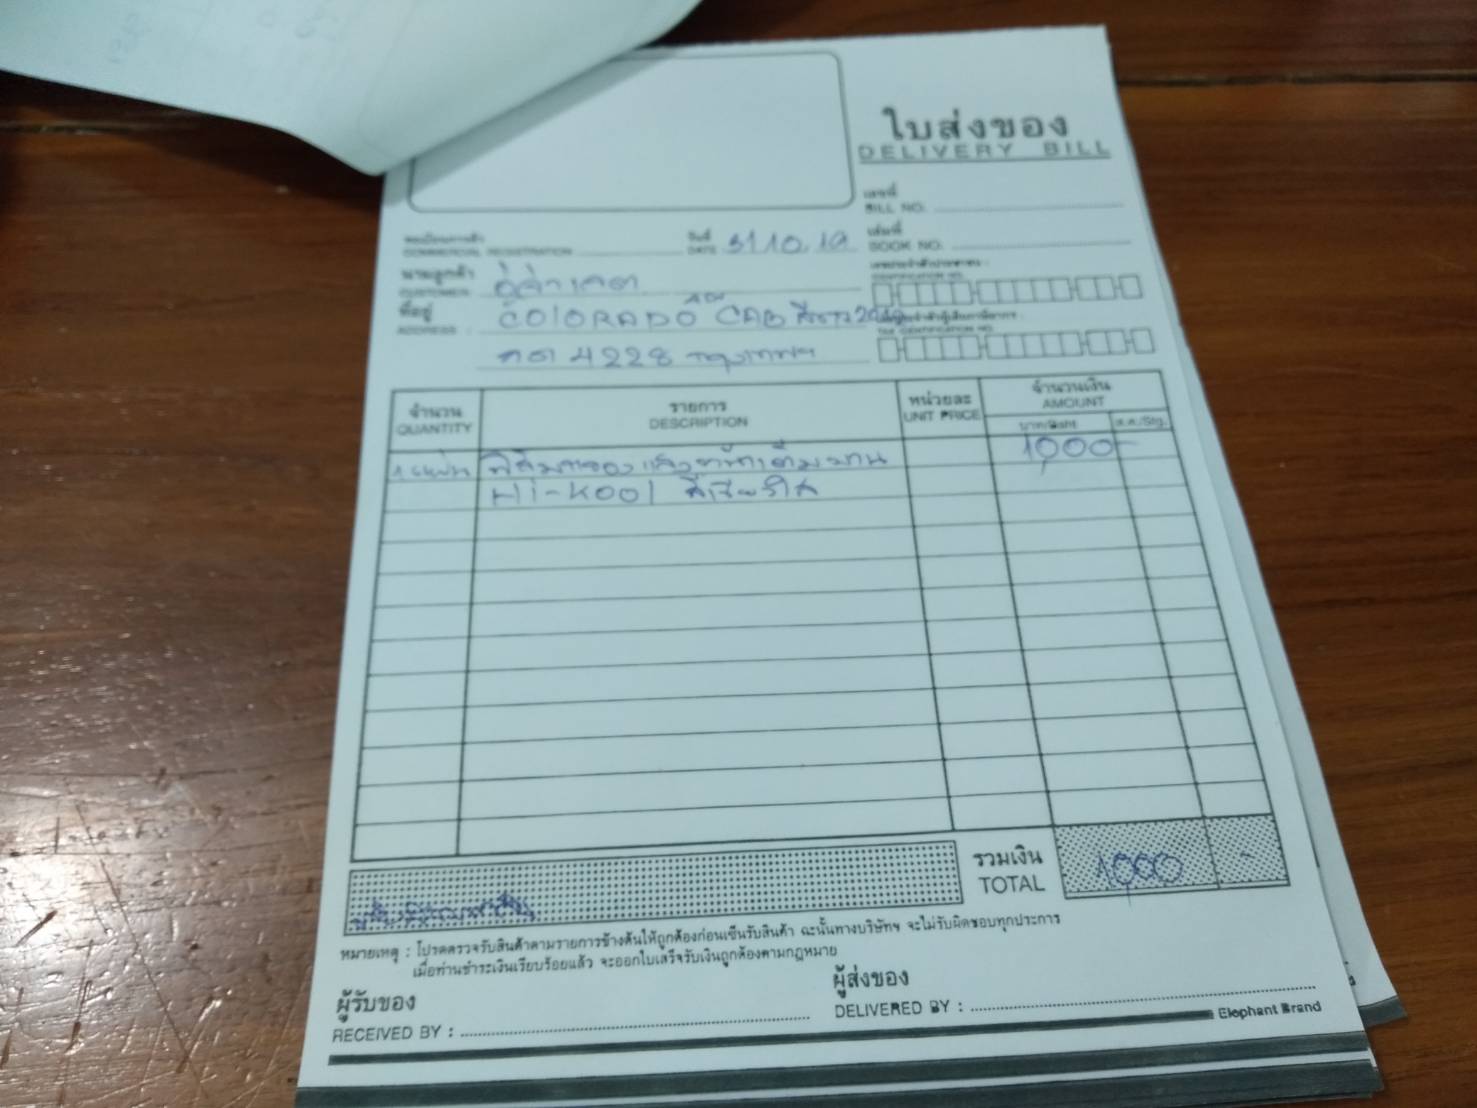 ใบส่งของ
DELIVERY BILL
เลขที่
BILL NO.
ทะเบียนการค้า
COMMERCIAL REGISTRATION
วันที่
DATE 31.10.19
เล่มที่
BOOK NO.
นามลูกค้า
CUSTOMER
เลขประจำตัวประชาชน :
IDENTIFICATION NO.
ที่อยู่
ADDRESS :
COLORADO CAB สีขาว 2019
TAX IDENTIFICATION NO.
4228 กรุงเทพฯ
จำนวน
QUANTITY
รายการ
DESCRIPTION
หน่วยละ
UNIT PRICE
จำนวนเงิน
AMOUNT
ส.ต./Stg.
1 แผ่น ฟิล์มกรองแสง เต็มบาน 1000 -
Hi-Kool
รวมเงิน
TOTAL
1000 -
หมายเหตุ : โปรดตรวจรับสินค้าตามรายการข้างต้นให้ถูกต้องก่อนเซ็นรับสินค้า ฉะนั้นทางบริษัทฯ จะไม่รับผิดชอบทุกประการ
เมื่อท่านชำระเงินเรียบร้อยแล้ว จะออกใบเสร็จรับเงินถูกต้องตามกฎหมาย
ผู้รับของ
RECEIVED BY :
ผู้ส่งของ
DELIVERED BY :
Elephant Brand